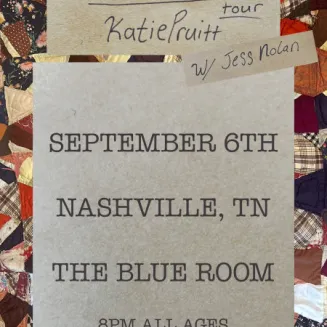 tour
Katie Pruitt
w/ Jess Nolan
SEPTEMBER 6TH
NASHVILLE, TN
THE BLUE ROOM
8PM ALL AGES